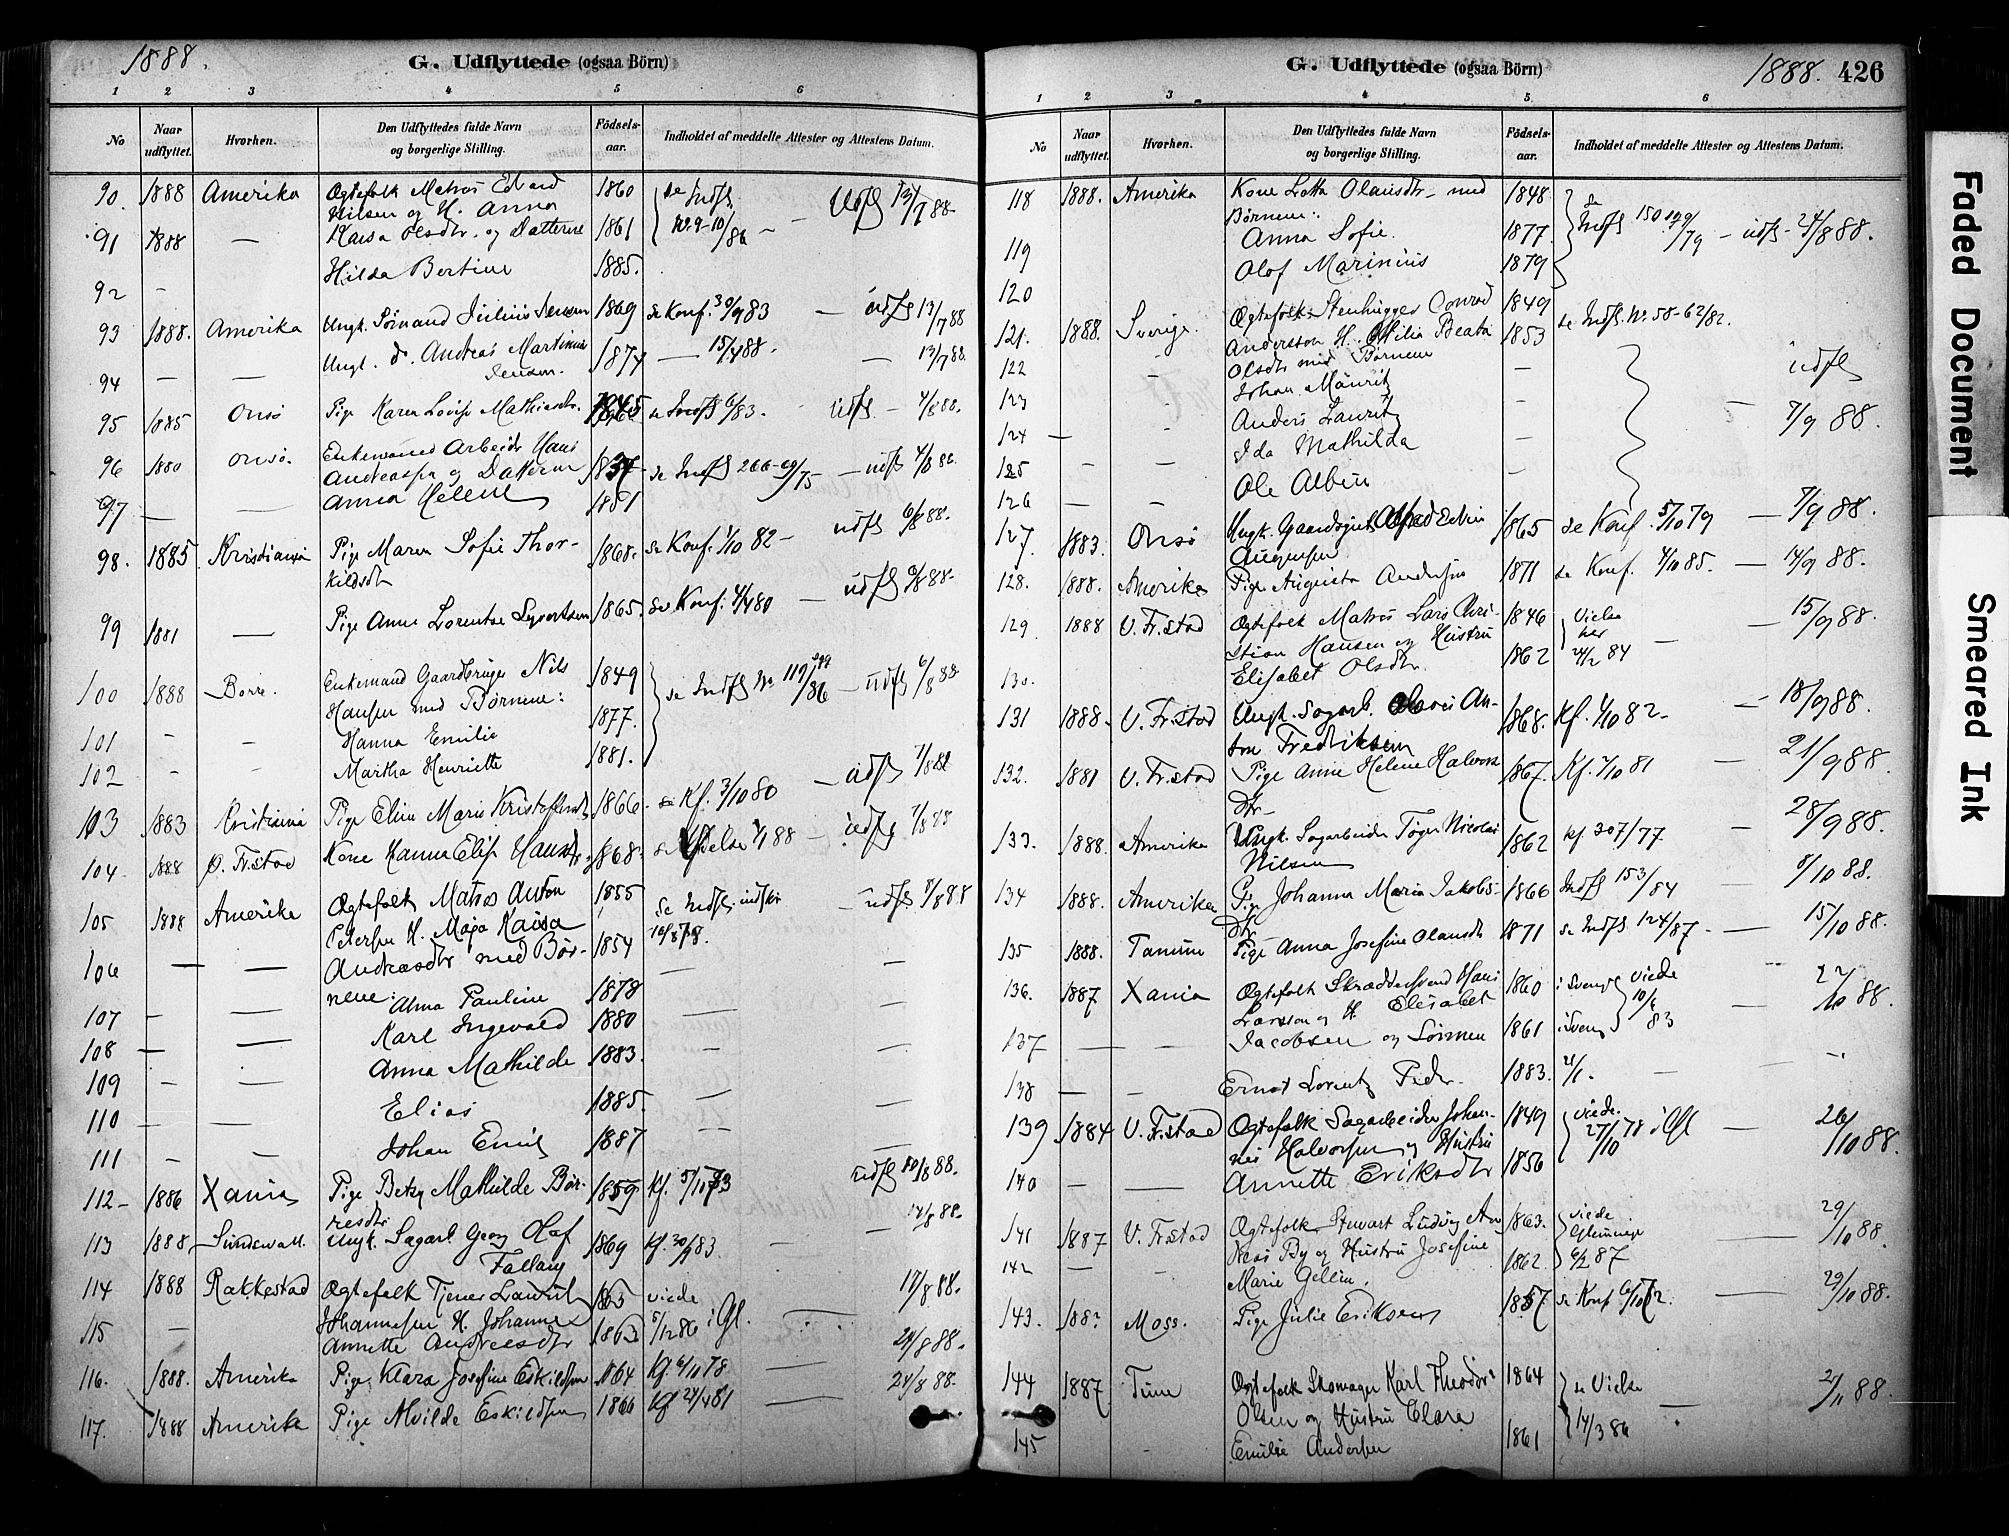 1888.
G. Udflyttede (ogsaa Börn)
1 2 3 4 5 6
No
Naar udflyttet.
Hvorhen.
Den Udflyttedes fulde Navn og borgerlige Stilling.
Födsels-aar.
Indholdet af meddelte Attester og Attestens Datum.
90. 1888 Amerika Ægtefolk Matros Edvard 1860 se Indfl. Udfl 13/7 88
Nilsen og H. Anna
91 1888 — Kaisa Olsdtr. og Datteren 1861 No 9-10/86 —
92 - Hilda Bertine 1885.
93 1888. Amerika Ungk. Julius Jensen 1869 se Konf. 30/9 83 — udfl 13/7 88
94 — — Ungk. d. Andreas Martinius 1874 — 15/4 88. — 13/7 88.
Jensen.
95 1885 Onsö Pige Karen Lovise Mathiasdtr. 1865 se Indfl 6/83. udfl — 4/8 88.
96 1880 Onsö. Enkemand Arbeider Hans
Andreasen og Datteren 1837 se Indfl 266-69/75 — udfl 4/8 88.
97 — — Anna Helene 1881
98. 1885 Kristiania Pige Maren Sofie Thor- 1868. se Konf. 1/10 82 — udfl 6/8 88.
kildsdtr
99 1881 — Pige Anne Lorentse Syvertsen 1865. se Konf. 4/4 80 — udfl 6/8 88.
100 1888 Borre. Enkemand Gaardbruger Nils 1849 se Indfl No 117/86 — udfl 6/8 88
Hansen med Børnene:
101 - - Hanna Emilie 1877.
102 - - Martha Henriette 1881.
103 1883 Kristiania Pige Elin Marie Kristoffersdtr 1866. se Kf. 3/10 80 — udfl 7/8 88
104. 1888 Ø. Fr.stad Kone Hanna Elise Hansdtr 1868. se Vielse 88 — udfl 7/8 88
105 1888 Amerika Ægtefolk Matros Anton 1855 se Indfl. indskr — udfl 8/8 88
Petersen H. Maja Kaisa 10/8 78.
106 — — Andreasdtr med Bør- 1854 — —
nene: Alma Pauline 1878
107 — — Karl Ingevald 1880 — —
108 — — Anna Mathilde 1883. — —
109 — — Elias 1885. — —
110 — — Johan Emil 1887 — —
111 - -
112- 1886 Xania Pige Betzy Mathilde Bør- 1859 Kf. 5/10 73 udfl 10/8 88.
resdtr
113 1888 Sundswall. Ungk. Sagarb. Georg Olaf 1869 Kf. 30/9 83 — — 14/8 88.
Fallang
114 1888 Rakkestad Ægtefolk Tjener Laurits 1863 viede 17/8 88.
Johannesen H. Johanne 5/12 86 i Gl.
115 — Annette Andreasdtr 1863 24/8 88.
116. 1888. Amerika Pige Klara Josefine Eskildsen 1864 Kf. 6/10 78 — 24/8 88.
117. 1888 Amerika Pige Alvilde Eskildsen 1866 Kf 24/4 81 —
G. Udflyttede (ogsaa Börn)
1888. 426
1 2 3 4 5 6
No
Naar udflyttet.
Hvorhen.
Den Udflyttedes fulde Navn og borgerlige Stilling.
Födsels-aar.
Indholdet af meddelte Attester og Attestens Datum.
118 1888. Amerika Kone Lotta Olausdtr. med 1848. se
Børnene: Indfl 150 /79 — udfl 24/8 88.
119 Anna Sofie. 1877.
120 Olof Marinius 1879
121. 1888. Sverige. Ægtefolk Stenhugger Conrad 1849 se Indfl. No 58-62/82.
Andersson H. Otilia Beata 1853
122 - Olsdtr med Børnene — udfl
123 - Johan Mauritz — — 7/9 88.
124 — Anders Lauritz —
125 — — Ida Mathilda —
126 — — Ole Albin
127. 1883. Onsö Ungk. Gaardsgut Alfred Edvin 1865 se Konf. 5/10 79 — 7/9 88.
Augensen
128. 1888. Amerika Pige Augusta Andersen 1871 se Konf. 4/10 85. — 14/9 88.
129. 1888 V. Fr.stad Ægtefolk Matros Lars Chri- 1846 Vielse — 15/9 88.
stian Hansen og Hustru her
130. Elisabet Olsdtr. 1862 24/2 84
131 1888. V. Fr.stad Ungk. Sagarb. Olavis An- 1868. Kf. 1/10 82. — 18/9 88.
ton Fredriksen
132. 1881 V. Fr.stad Pige Anne Helene Halvors- 1867. Kf. 1/10 81 — 21/9 88.
dtr.
133. 1888. Amerika Ungk. Sagarbeider Tøger Nicolai 1862 Kf. 30 7/77 — 28/9 88.
Nilsen
134 1888. Amerika Pige Johanna Maria Jakobs- 1866 Indfl 153/84 — 8/10 88.
dtr.
135 1888. Tanum Pige Anna Josefine Olausdtr 1871 se Indfl 124/87 — 15/10 88.
136. 1887 Xania Ægtefolk Skræddersvend Hans 1860 i Sverig viede 22/10 88.
Larsson og H. Elisabet 10/6
137 — — Jacobsen og Sønnen 1861 i Sverig 83
138 — — Ernst Lorentz Peder. 1883. 21/1. —
139 1884 V. Fr.stad Ægtefolk Sagarbeider Johan- 1849 viede. — 26/10 88.
nes Halvorsen og Hustru 27/10 78 i Gl
140 — — Annette Eriksdtr 1856
141 1887 V. Fr.stad Ægtefolk Stewart Ludvig An- 1863. viede 29/10 88.
dreas By og Hustru Josefine Glemminge
142 — — Marie Gellin. 1862. 6/2 87
143. 188? Moss. Pige Julie Eriksen 1857 se Konf. 6/10 72. — 29/10 88.
144 1887 Tune Ægtefolk Skomager Karl Theodor 1864 se Vielse — 2/11 88.
Olsen og Hustru Clara 14/3 86
145 - Emilie Andersen 1861
Faded Document
Smeared Ink